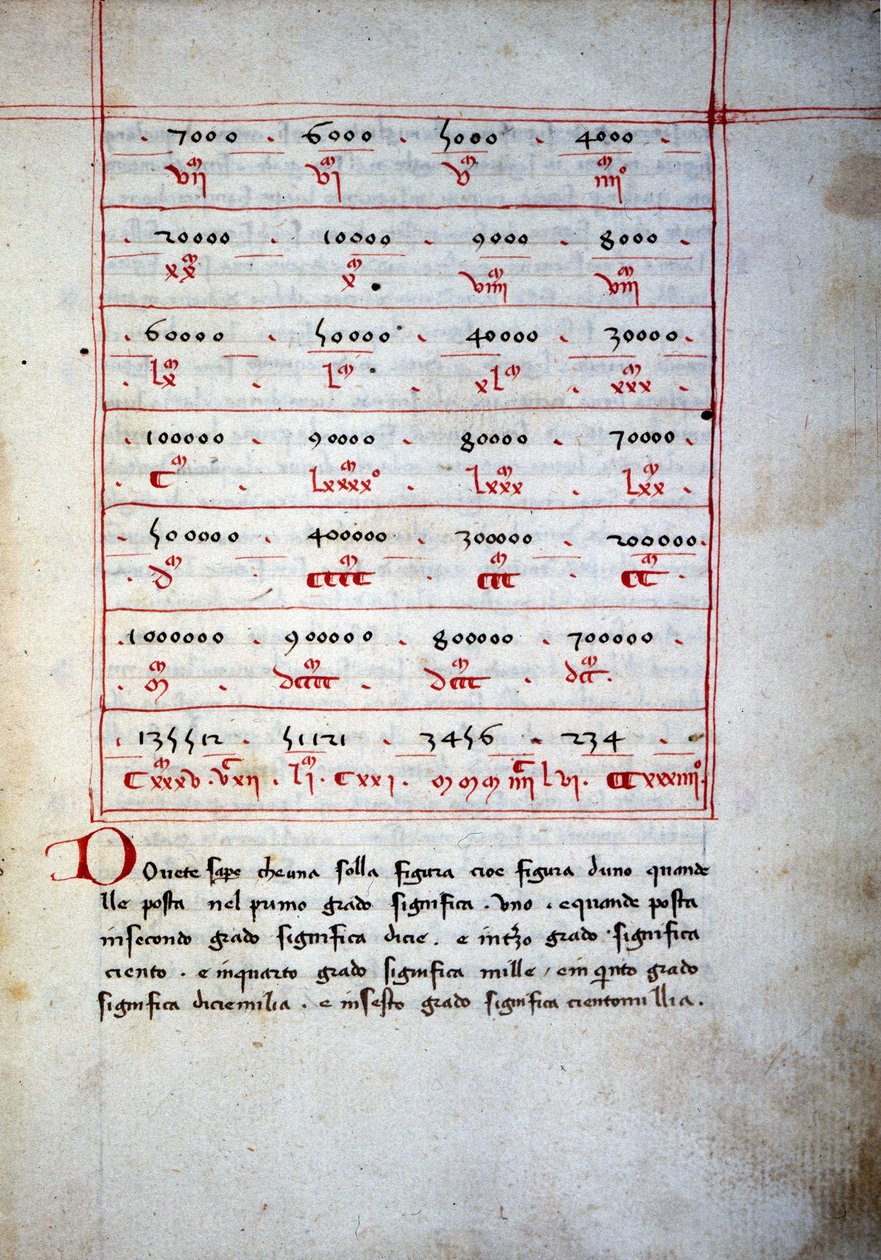 7000 · 6000 · 5000 · 4000
vii^m vi^m v^m iiii^o m
20000 · 10000 · 9000 · 8000
xx^m x^m viiii^m viii^m
60000 · 50000 · 40000 · 30000
lx^m l^m xl^m xxx^m
100000 · 90000 · 80000 · 70000
c^m lxxxx^o m lxxx^m lxx^m
500000 · 400000 · 300000 · 200000
d^m cccc^m ccc^m cc^m
1000000 · 900000 · 800000 · 700000
m^m dcccc^m dccc^m dcc^m
135512 · 51121 · 3456 · 234
cxxxv^m · v^c xii · li^m · cxxi · m m m iiii^c lvi · ccxxxiiii^o
Dovete sape cheuna solla figura cioe figura duno quande
lle posta nel primo grado significa · vno · equande posta
insecondo grado significa dicie · e intrzo grado significa
ciento · e inquarto grado significa mille / ein qinto grado
significa diciemilia · e insesto grado significa cientomillia ·